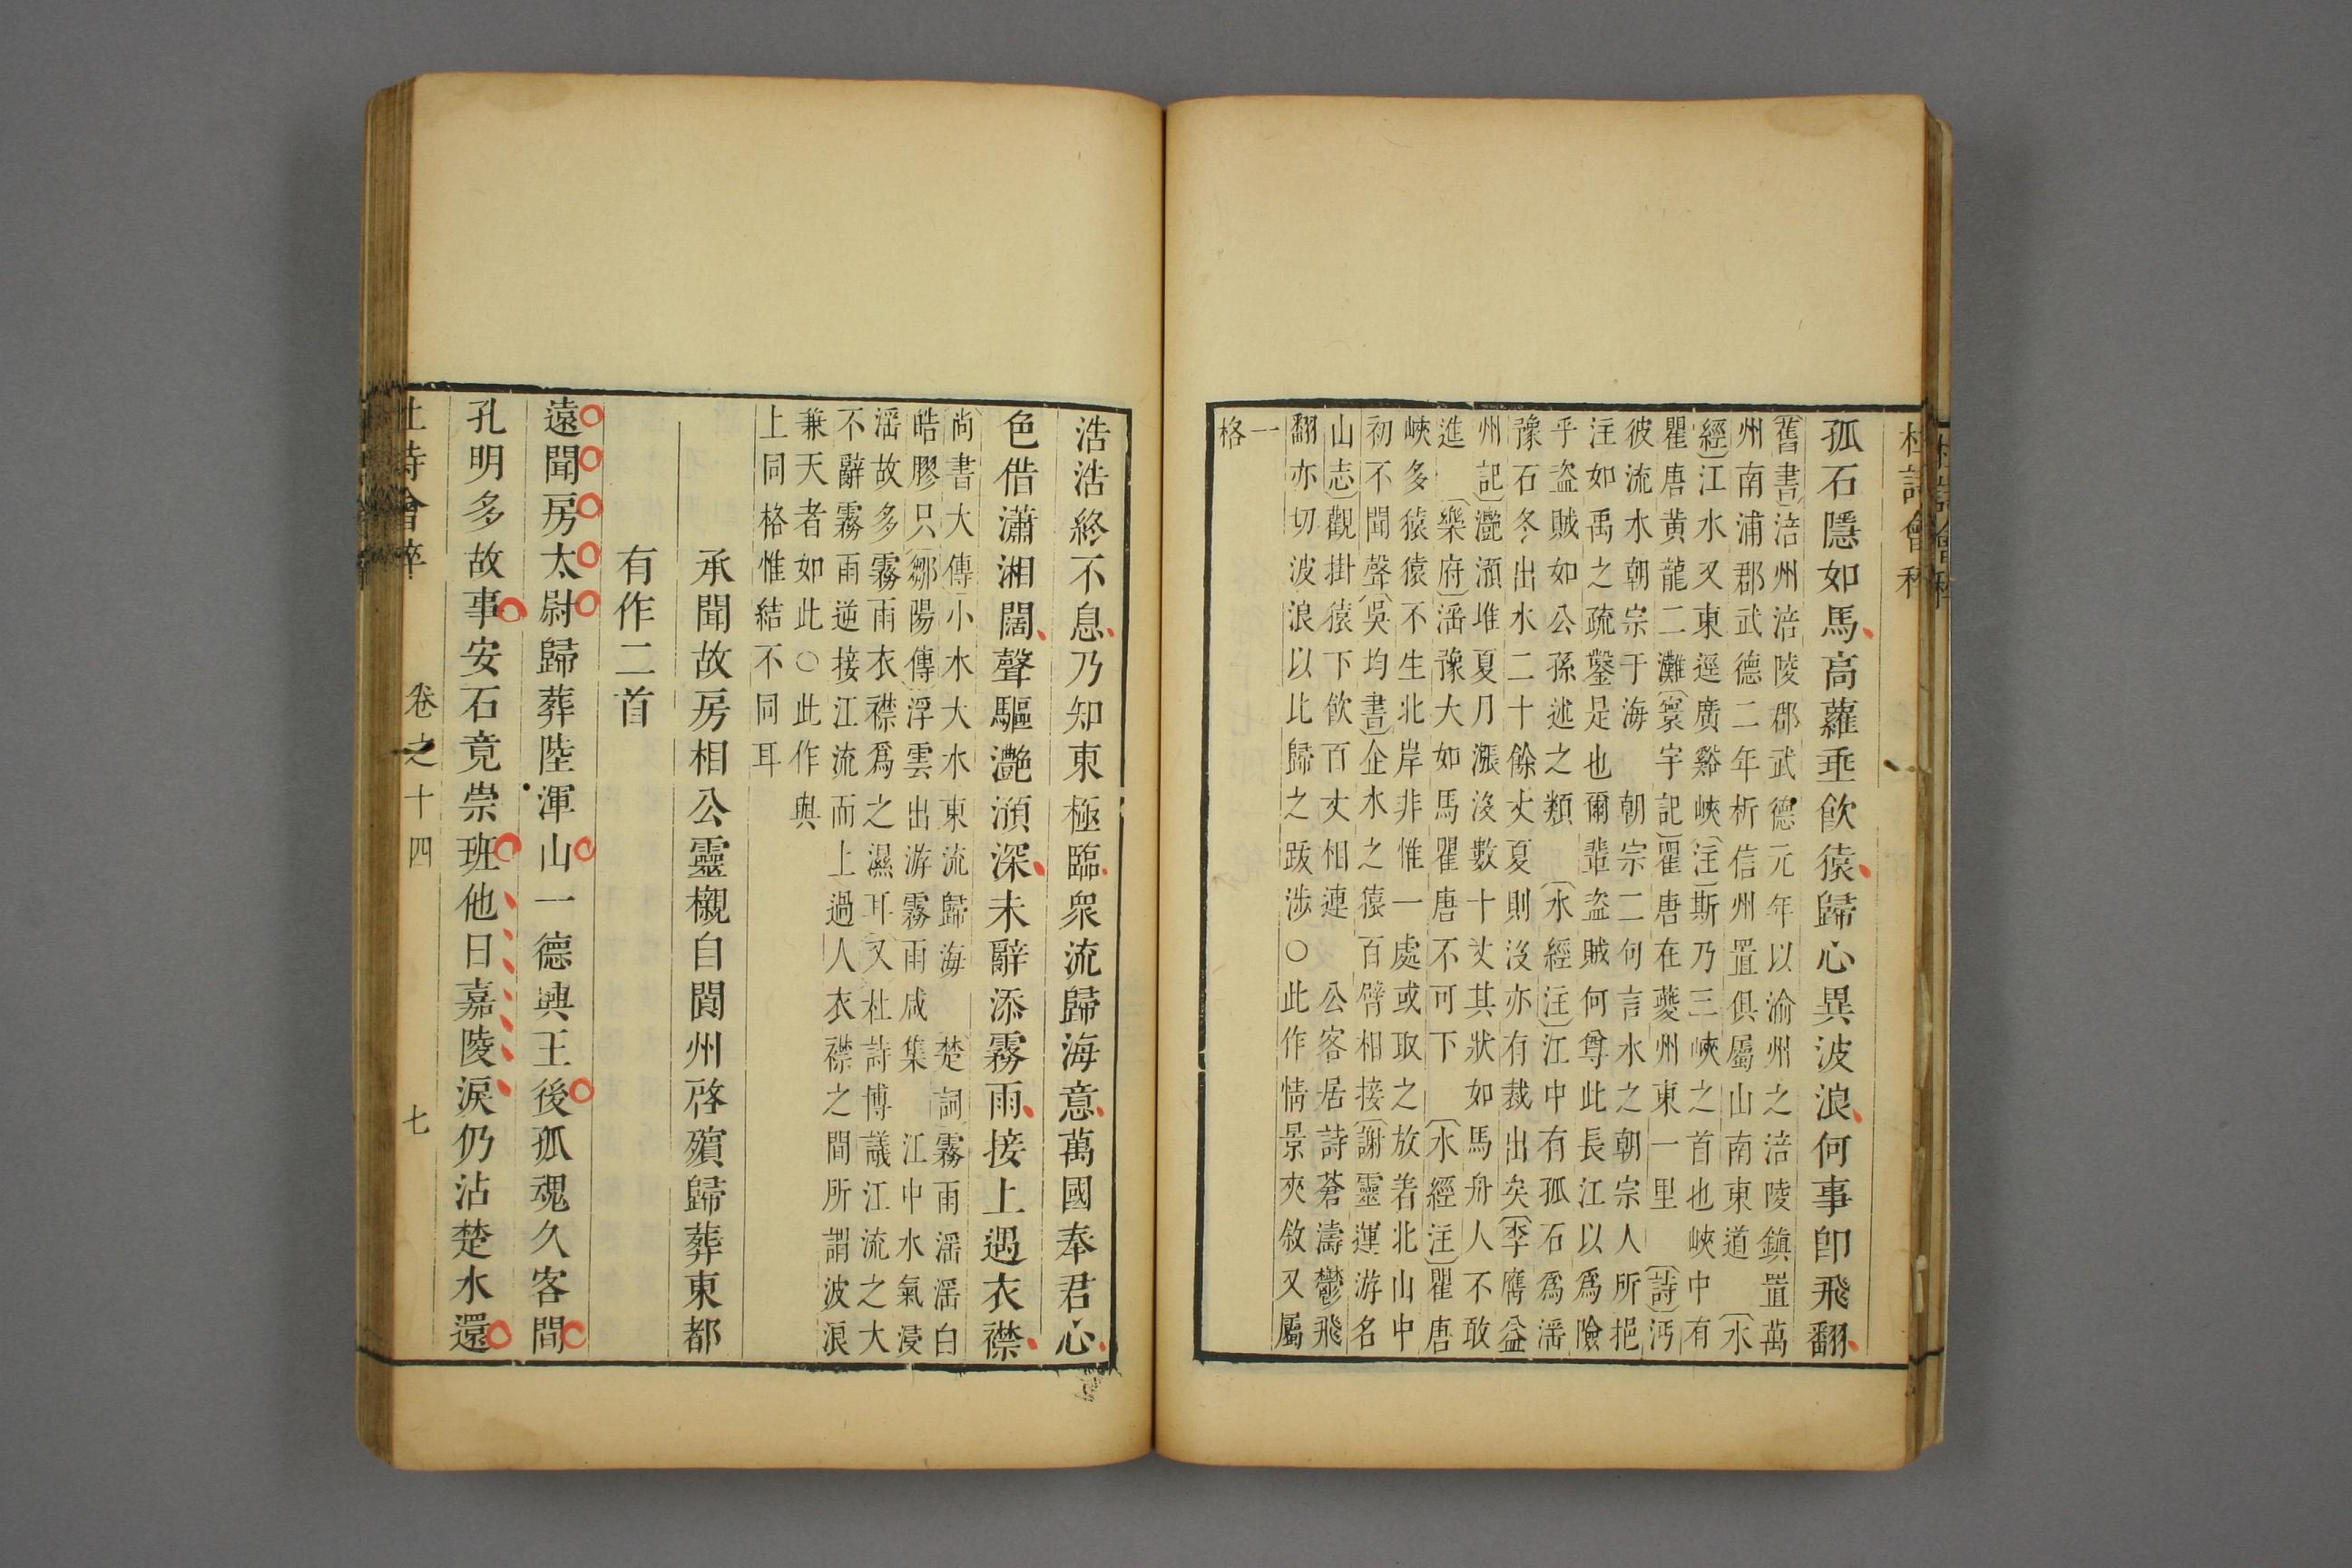 杜詩會稡
孤石隱如馬高蘿垂飲猿歸心異波浪何事卽飛翻
舊書涪州涪陵郡武德元年以渝州之涪陵鎮置萬
州南浦郡武德二年析信州置俱屬山南東道 水
經江水又東逕廣谿峽注斯乃三峽之首也峽中有
瞿唐黄龍二灘寰宇記瞿唐在夔州東一里 詩沔
彼流水朝宗于海 朝宗二句言水之朝宗人所挹
注如禹之疏鑿是也爾輩盜賊何尊此長江以爲險
乎盜賊如公孫述之類 水經注江中有孤石爲滛
豫石冬出水二十餘丈夏則沒亦有裁出矣李膺益
州記灔澦堆夏月漲沒數十丈其狀如馬舟人不敢
進 樂府滛豫大如馬瞿唐不可下 水經注瞿唐
峽多猿猿不生北岸非惟一處或取之放着北山中
初不聞聲吳均書企水之猿百臂相接謝靈運游名
山志觀掛猿下飲百丈相連 公客居詩蒼濤鬱飛
翻亦切波浪以比歸之跋涉○此作情景夾敘又屬
一
格
浩浩終不息乃知東極臨衆流歸海意萬國奉君心
色借瀟湘闊聲驅灔澦深未辭添霧雨接上遇衣襟
尚書大傳小水大水東流歸海 楚詞霧雨滛滛白
皓膠只鄒陽傳浮雲出游霧雨咸集 江中水氣浸
滛故多霧雨衣襟爲之濕耳又杜詩博議江流之大
不辭霧雨逆接江流而上過人衣襟之間所謂波浪
兼天者如此○此作與
上同格惟結不同耳
承聞故房相公靈櫬自閬州啓殯歸葬東都
有作二首
遠聞房太尉歸葬陸渾山一德興王後孤魂久客間
孔明多故事安石竟崇班他日嘉陵淚仍沾楚水還
杜詩會稡 卷之十四 七